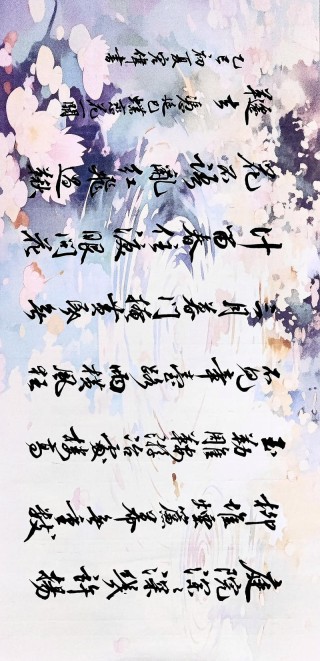 庭院深々深幾許楊
柳堆煙簾幕無重數
玉勒雕鞍游冶處樓高
不見章臺路雨橫風狂
三月暮門掩黃昏無
計留春住淚眼問花
花不語亂紅飛過鞦
韆去 蝶恋花
乙巳初夏書